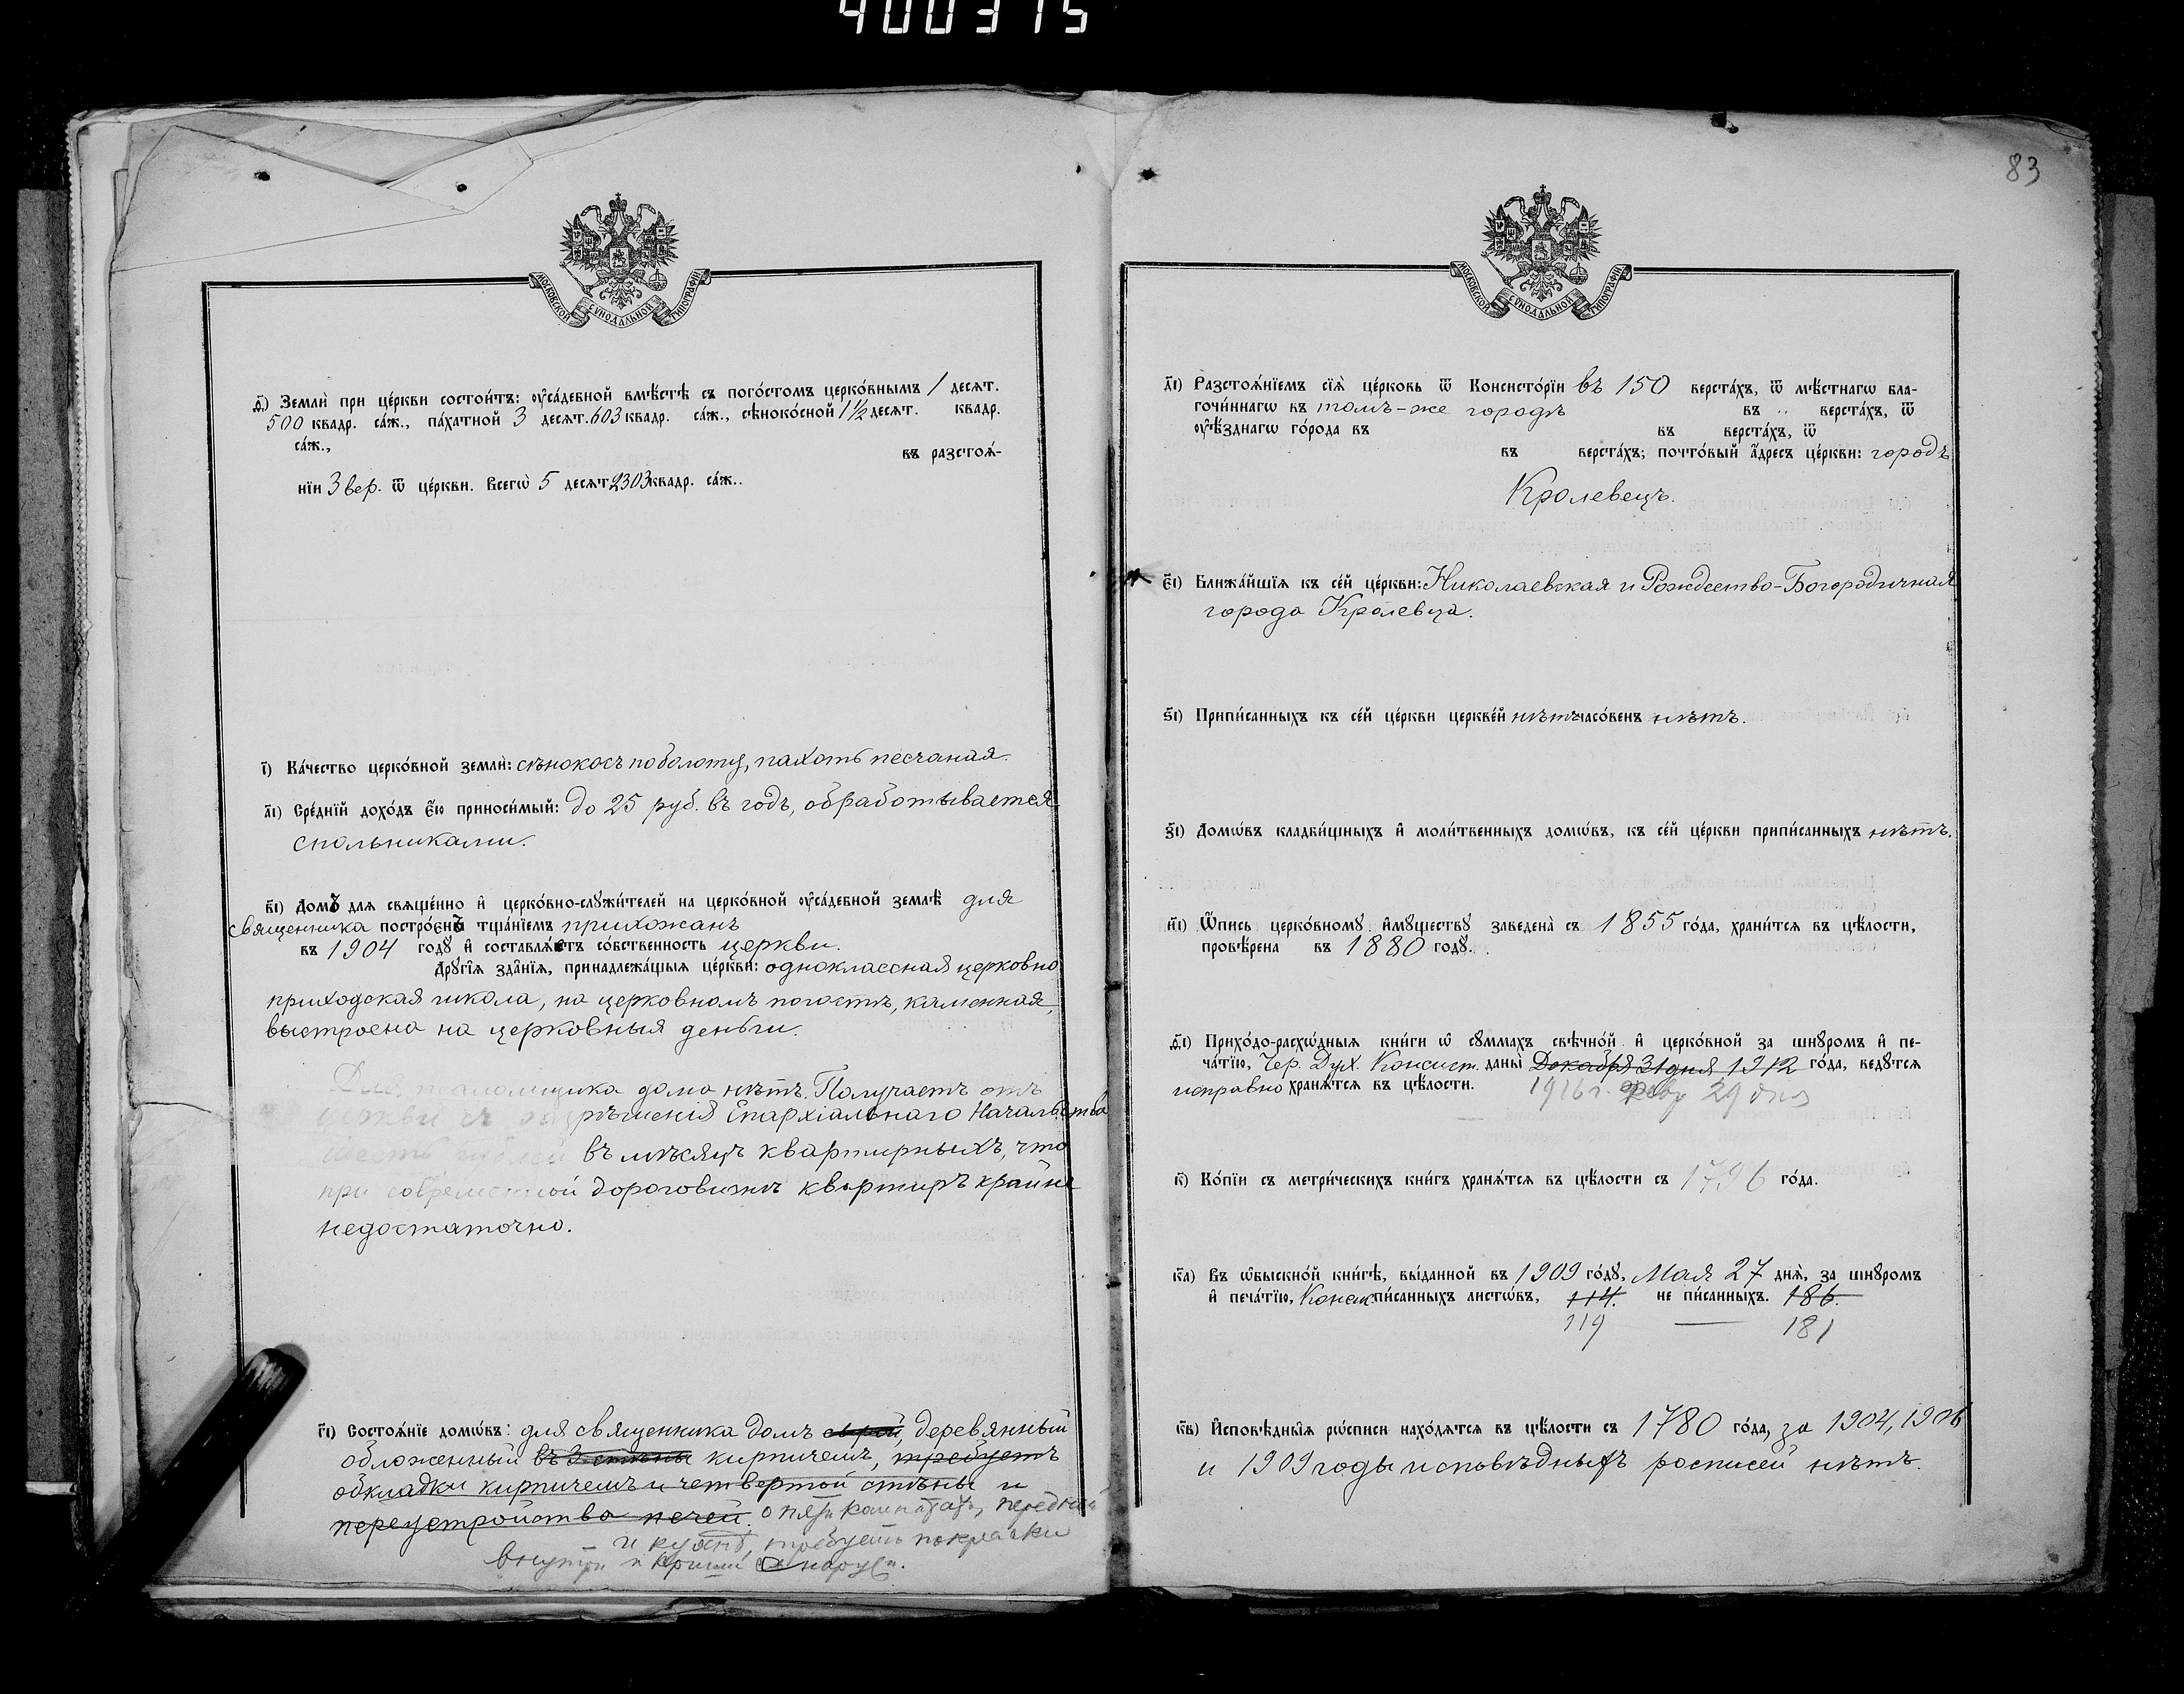 400315
МОСКОВСКОЙ СѴНОДАЛЬНОЙ ТИПОГРАФІИ
ѳ҃і) Землѝ при це́ркви состои́тъ: ѹ҆са́дебной вмѣ́стѣ съ пого́стомъ церко́внымъ 1 десѧт.
500 квадр. са́ж., па́хатной 3 десѧт. 603 квадр. са́ж., сѣноко́сной 1½ десѧт. квадр.
са́ж.,
въ разстоѧ́-
нїи 3 вер. ѿ це́ркви. Всегѡ̀ 5 десѧт 2303 квадр. са́ж..
і҃) Ка́чество церко́вной землѝ: сѣнокосъ по болоту, пахать песчаная.
а҃і) Сре́днїй дохо́дъ є҆́ю приноси́мый: до 25 руб. въ годъ, обработывается
спольниками.
в҃і) Домꙋ̀ для свѧще́нно и҆ церко́вно-слꙋжи́телей на церко́вной ѹ҆са́дебной землѣ̀ для
священника постро́енъ тща́нїемъ прихожанъ
въ 1904 годꙋ̀ и҆ составлѧ́етъ со́бственность церкви.
Дрꙋгі̑ѧ зда̑нїѧ, принадлежа́щыѧ це́ркви: одноклассная церковно
приходская школа, на церковномъ погостѣ, каменная,
выстроена на церковныя деньги.
Для псаломщика дома нѣтъ. Получаетъ отъ
церкви съ разрѣшенія Епархіальнаго Начальства
шесть рублей въ мѣсяцъ квартирныхъ, что
при современной дороговизнѣ квартиръ крайне
недостаточно.
г҃і) Состоѧ́нїе домѡ́въ: для священника домъ сырой, деревянный
обложенный въ 3 стѣны кирпичемъ, требуетъ
обкладки кирпичемъ и четвертой стѣны и
переустройства печей. о пяти комнатахъ, передней
и кухнѣ, требуетъ покраски
внутри и крыши снаружи.
83
МОСКОВСКОЙ СѴНОДАЛЬНОЙ ТИПОГРАФІИ
д҃і) Разстоѧ́нїемъ сїѧ̀ це́рковь ѿ Консисто́рїи въ 150 верста́хъ, ѿ мѣ́стнагѡ бла-
гочи́ннагѡ въ томъ-же городѣ въ „ верста́хъ, ѿ
ѹ҆ѣ́зднагѡ го́рода въ въ верста́хъ, ѿ
въ верста́хъ; почто́вый а҆́дресъ це́ркви: городъ
Кролевецъ.
є҃і) Ближа́йшїѧ къ се́й це́ркви: Николаевская и Рождество-Богородичная
города Кролевца.
ѕ҃і) Припи́санныхъ къ се́й це́ркви церкве́й нѣтъ часо́венъ нѣтъ.
з҃і) Домѡ́въ кладби́щныхъ и҆ моли́твенныхъ домѡ́въ, къ се́й це́ркви припи́санныхъ нѣтъ.
и҃і) Ѻ҆́пись церко́вномꙋ и҆мꙋ́ществꙋ заведена̀ съ 1855 го́да, храни́тсѧ въ цѣ́лости,
провѣ́рена въ 1880 годꙋ̀.
ѳ҃і) Прихо́до-расхѡ́дныѧ кни́ги ѡ҆ сꙋ́ммахъ свѣчно́й и҆ церко́вной за шнꙋро́мъ и҆ пе-
ча́тїю, Чер. Дух. Консист. даны̀ Декабря 31 дня 1912 го́да, ведꙋ́тсѧ
исправно хранѧ́тсѧ въ цѣ́лости. 1916 г. февр 29 дня
к҃) Ко́пїи съ метри́ческихъ кни́гъ хранѧ́тсѧ въ цѣ́лости съ 1796 го́да.
к҃а) Въ ѡ҆́быскно́й кни́гѣ, вы́данной въ 1909 го́дꙋ, Мая 27 днѧ̀, за шнꙋро́мъ
и҆ печа́тїю, Консис пи́санныхъ листѡ́въ, 114. не пи́санныхъ. 186.
119 — 181
к҃в) И҆сповѣ̑дныѧ рѡ́списи нахо́дѧтсѧ въ цѣ́лости съ 1780 го́да, за 1904, 1906
и 1909 годы исповѣдныхъ росписей нѣтъ.